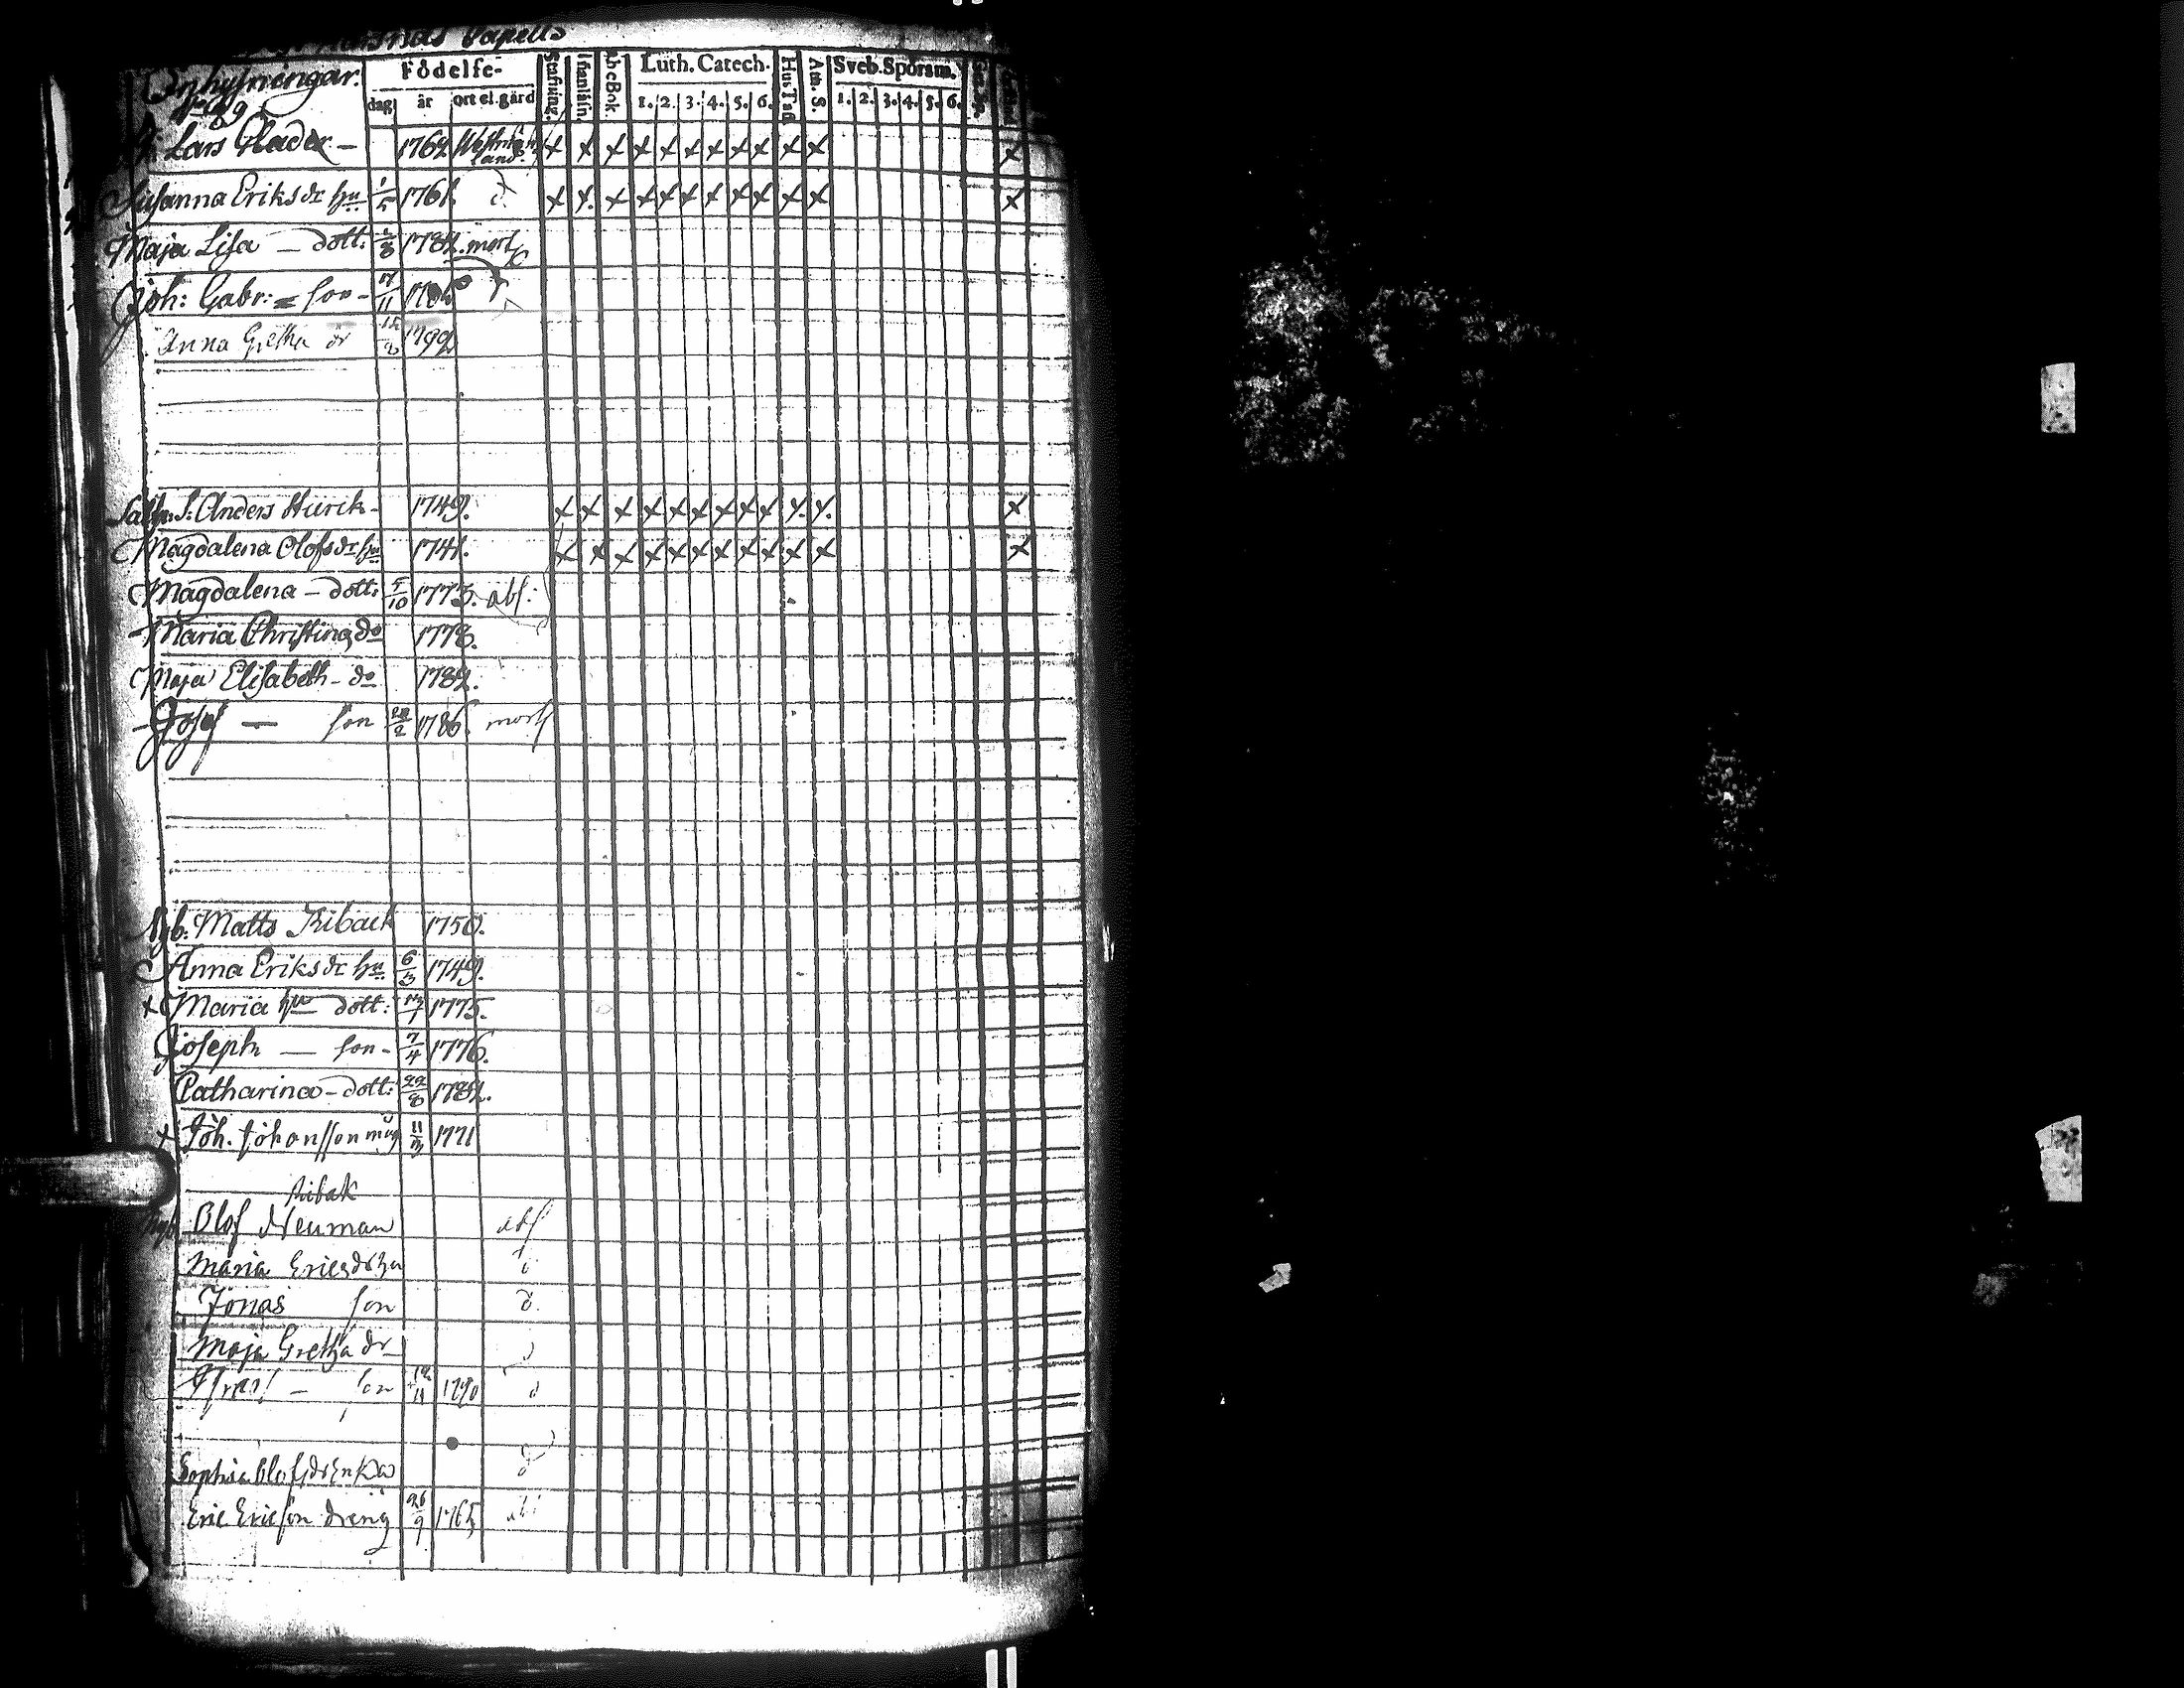 Capells
Inhysningar.
Födelse-
dag år ort el. gård
Stafning. Innanläsn. AbcBok. Luth. Catech. 1. 2. 3. 4. 5. 6. Hus Tafl. Ath. S. Sveb. Spörsm. 1. 2. 3. 4. 5. 6.
Lars Glader - 1762 x x x x x x x x x x x x
land.
Susanna Eriks dr hu 1/5 1761. d. x x. x x x x x x x x x x
Maja Lisa - dott: 1782. mort
Joh: Gabr: = son - 17/11
Anna Gretha dr 1792
S: Anders Hurck - 1749. x x x x x x x x x x. x. x
Magdalena Olofs dr hu 1741. x x x x x x x x x x x x
Magdalena - dott: 5/10 1775. abs:
Maria Christina do 1778.
Maja Elisabeth - do 1782.
Josef - son 1786. mort
Matts Riback 1750.
Anna Eriks dr hu 6/3 1749.
x Maria hu dott: 1775.
Joseph - son - 7/4 1776.
Catharina - dott: 22/8 1782.
x Joh. Johansson måg 11/3 1771
Ribak
Olof Neuman abs
Maria Erics dr hu d.
Jonas son d.
Maja Gretha dr d
son 1790 d
Sophia Olofs dr Enka d
Eric Ericson dreng 26/9 1765 abs